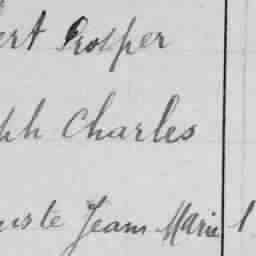 ert Prosper
ph Charles
uste Jean Marie 1